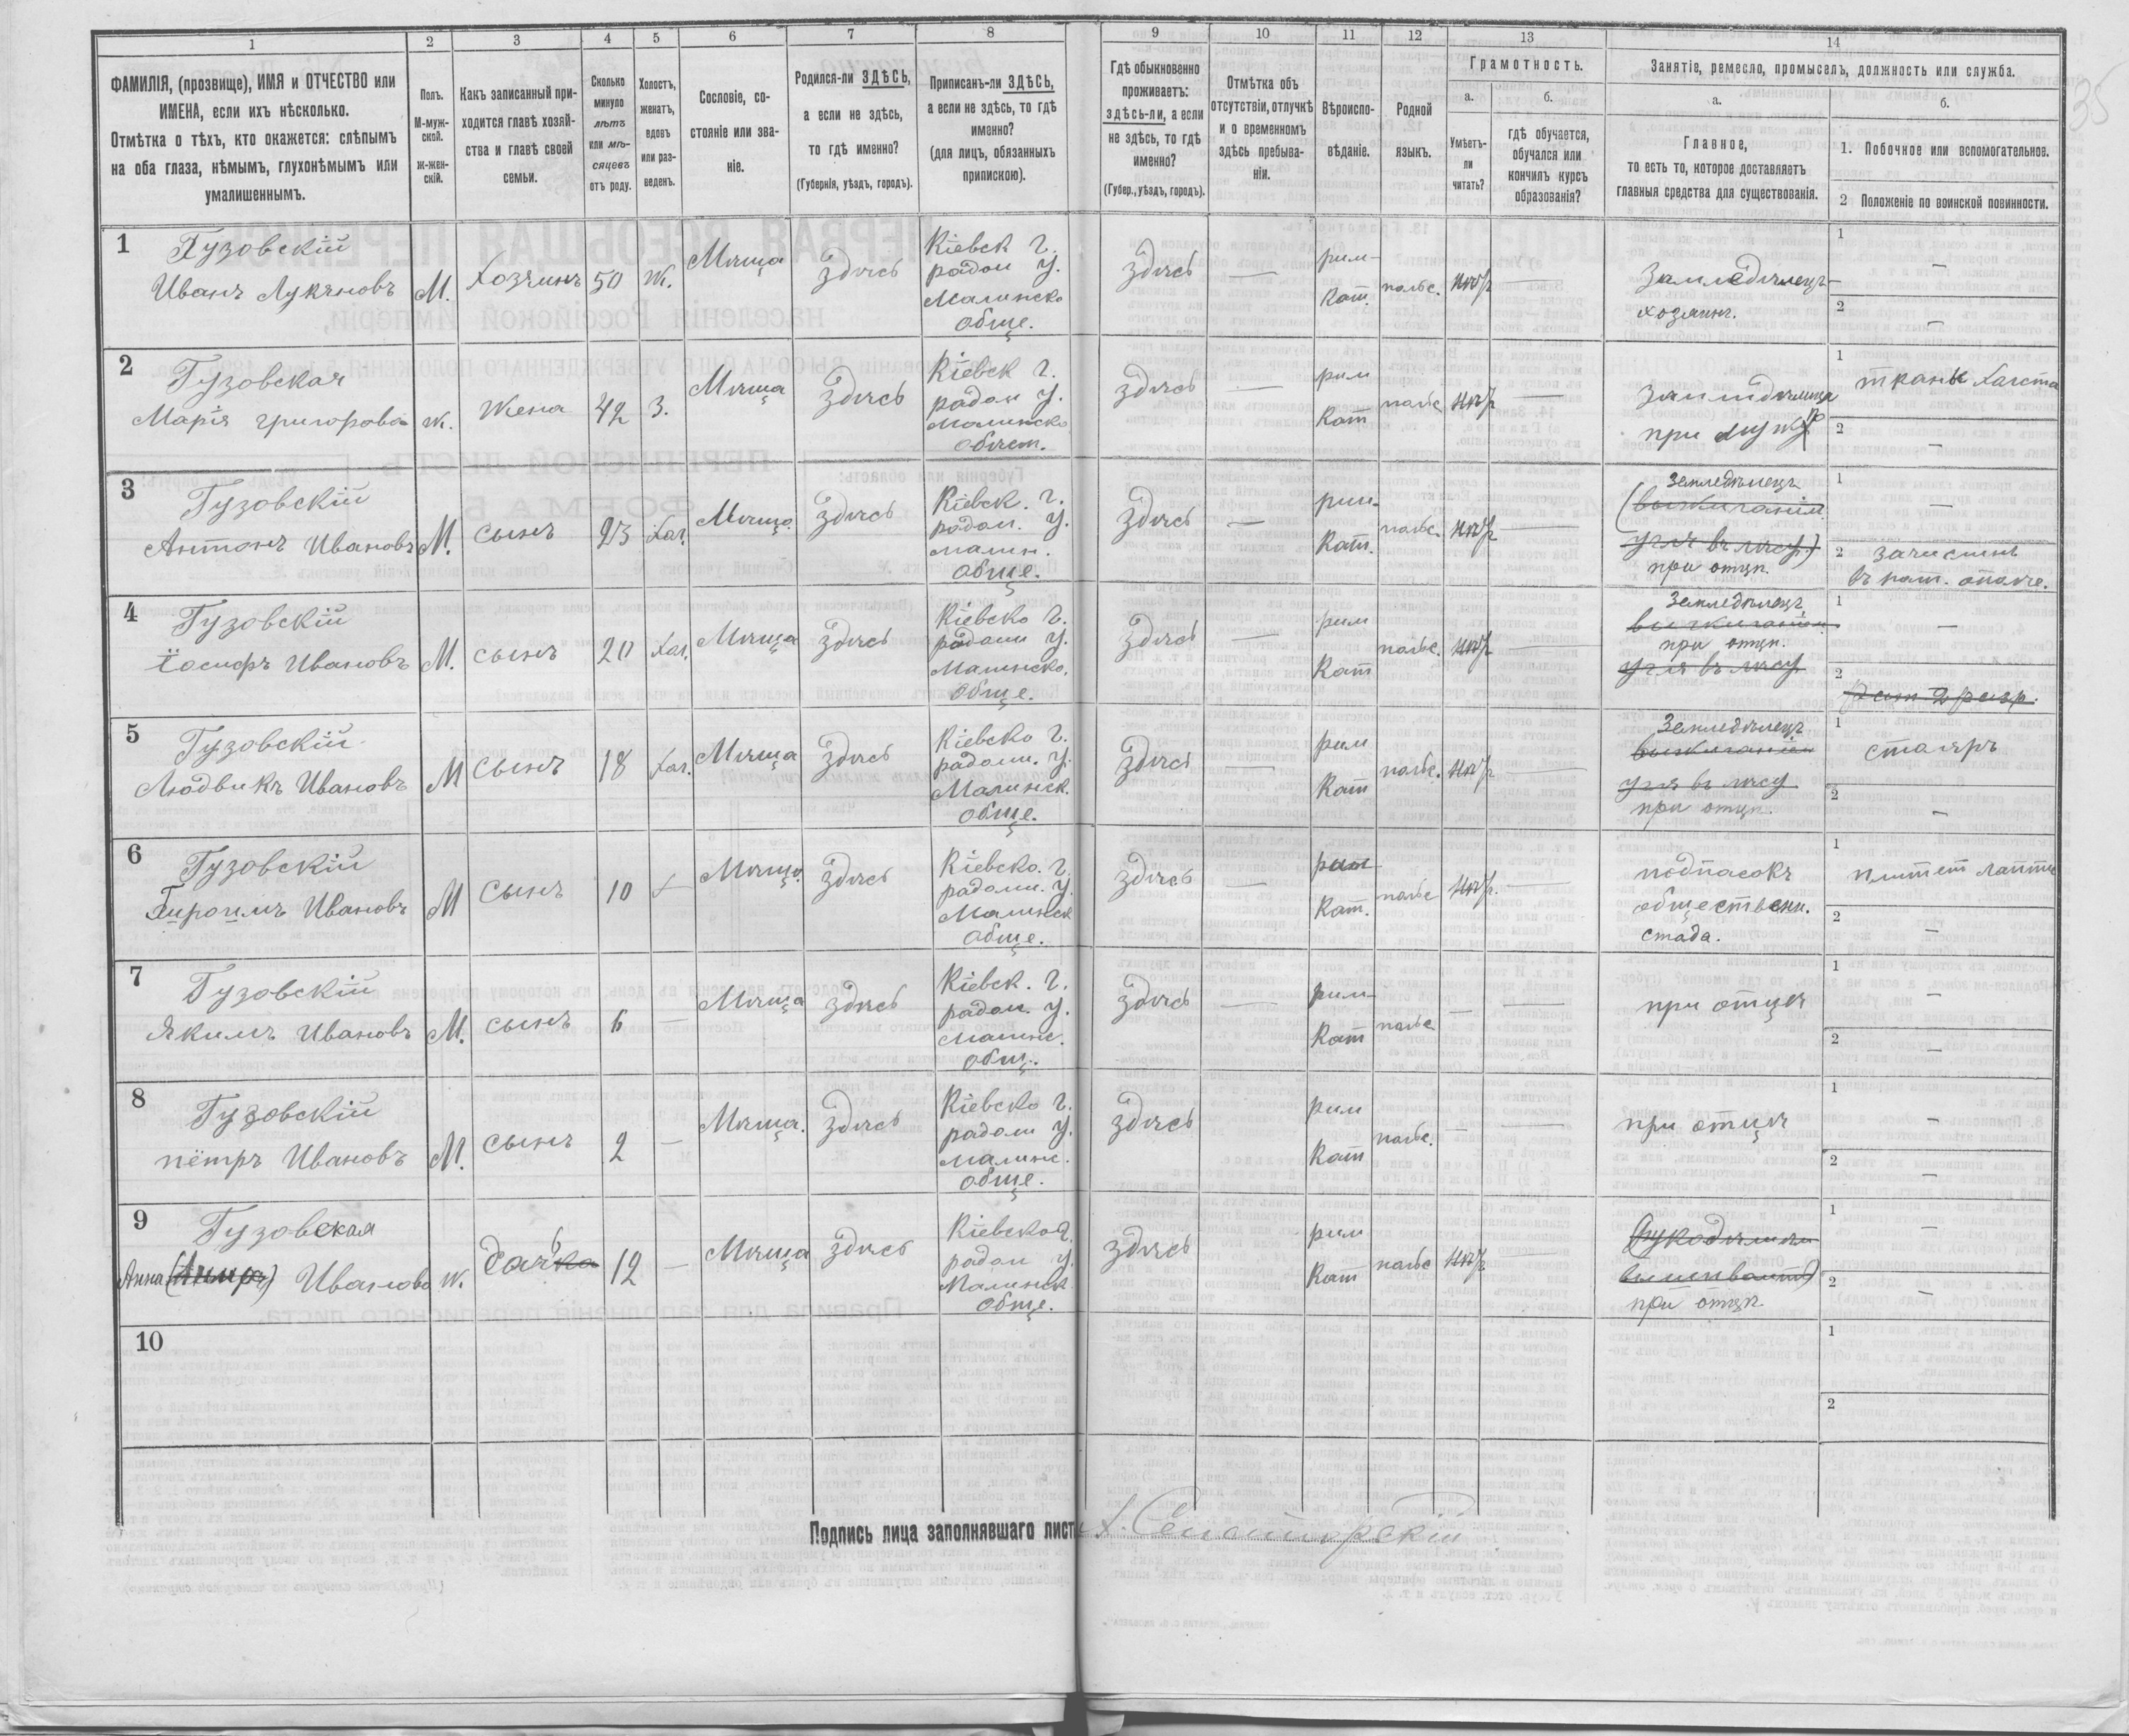 35
1 2 3 4 5 6 7 8 9 10 11 12 13 14
ФАМИЛІЯ, (прозвище), ИМЯ и ОТЧЕСТВО или
ИМЕНА, если ихъ нѣсколько.
Отмѣтка о тѣхъ, кто окажется: слѣпымъ
на оба глаза, нѣмымъ, глухонѣмымъ или
умалишеннымъ.
Полъ.
М-муж-
ской.
ж-жен-
скій.
Какъ записанный при-
ходится главѣ хозяй-
ства и главѣ своей
семьи.
Сколько
минуло
лѣтъ
или мѣ-
сяцевъ
отъ роду.
Холостъ,
женатъ,
вдовъ
или раз-
веденъ.
Сословіе, со-
стояніе или зва-
ніе.
Родился-ли ЗДѢСЬ,
а если не здѣсь,
то гдѣ именно?
(Губернія, уѣздъ, городъ).
Приписанъ-ли ЗДѢСЬ,
а если не здѣсь, то гдѣ
именно?
(для лицъ, обязанныхъ
припискою).
Гдѣ обыкновенно
проживаетъ:
здѣсь-ли, а если
не здѣсь, то гдѣ
именно?
(Губер., уѣздъ, городъ).
Отмѣтка объ
отсутствіи, отлучкѣ
и о временномъ
здѣсь пребыва-
ніи.
Вѣроиспо-
вѣданіе.
Родной
языкъ.
Грамотность.
а.
Умѣетъ-
ли
читать?
б.
гдѣ обучается,
обучался или
кончилъ курсъ
образованія?
Занятіе, ремесло, промыселъ, должность или служба.
а.
Главное,
то есть то, которое доставляетъ
главныя средства для существованія.
б.
1. Побочное или вспомогательное.
2 Положеніе по воинской повинности.
1
Гузовскій
Иванъ Лукяновъ
М.
Хозяинъ
50
Ж.
Мѣща
Здѣсь
Кіевск г.
радом у.
Малинско
обще.
Здѣсь
—
рим-
Кат.
польс.
нѣт
—
Земледѣлецъ
хозяинъ.
1 —
2 —
2
Гузовская
Марія григорова
Ж.
Жена
42
З.
Мѣща
Здѣсь
Кіевск г.
радом у.
Малинско
общест.
здѣсь
—
рим
Кат
польс
нѣт
—
при мужѣ
1 тканье холста
2 —
3
Гузовскій
Антонъ Ивановъ
М.
сынъ
23
Хол.
Мѣща
Здѣсь
Кіевск. г.
радом. у.
малин.
обще.
Здѣсь
—
рим-
Кат.
польс.
нѣт
—
Земледѣлецъ
(выжиганіем
угля въ лѣсу)
при отцѣ.
1 —
2 зачислинъ
въ рат. ополче.
4
Гузовскій
Іосифъ Ивановъ
М.
сынъ
20
Хол.
Мѣща
здѣсь
Кіевско г.
радом у.
Малинско.
обще.
Здѣсь
—
рим
Кат
польс.
нѣт
—
Земледѣлецъ
выжиганіем
при отцѣ.
угля въ лѣсу
1 —
2
5
Гузовскій
Людвикъ Ивановъ
М
сынъ
18
Хол.
Мѣща
Здѣсь
Кіевско г.
радом. у.
Малинск.
обще.
Здѣсь
—
рим
Кат
польс.
нѣт
—
Земледѣлецъ
выжиганіем
угля въ лѣсу
при отцѣ.
1 столяръ
2 —
6
Гузовскій
Ивановъ
М
сынъ
10
Х
Мѣща.
Здѣсь
Кіевско. г.
радом. у.
Малинск
обще.
Здѣсь
—
рим
Кат.
польс
нѣт.
—
подпасокъ
общественн.
стада.
1 плитет лапти
2 —
7
Гузовскій
Якимъ Ивановъ
М.
сынъ
6
—
Мѣща
здѣсь
Кіевск. г.
радом. у.
Малинс.
общ.
Здѣсь
—
рим-
Кат
польс
—
—
при отцѣ
1 —
2 —
8
Гузовскій
пётръ Ивановъ
М.
сынъ
2
—
Мѣща.
Здѣсь
Кіевско г.
радом у.
Малинс.
обще.
Здѣсь
рим
Кат
польс.
—
—
при отцѣ
1 —
2 —
9
Гузовская
Анна Иванова
Ж.
дочь
12
—
Мѣща
здѣсь
Кіевско г.
радом у.
Малинск
обще.
здѣсь
рим
Кат
польс
нѣт
—
(рукодѣліем
вышивает)
при отцѣ.
1 —
2 —
10
1
2
Подпись лица заполнявшаго листъ